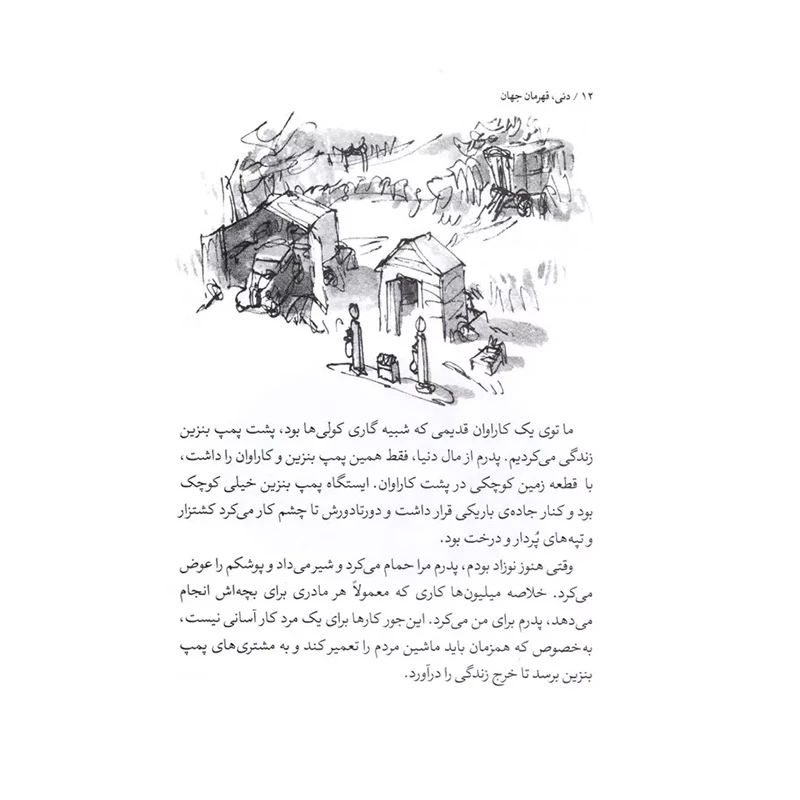 ۱۲ / دنی، قهرمان جهان
ما توی یک کاراوان قدیمی که شبیه گاری کولی‌ها بود، پشت پمپ بنزین
زندگی می‌کردیم. پدرم از مال دنیا، فقط همین پمپ بنزین و کاراوان را داشت،
با قطعه زمین کوچکی در پشت کاراوان. ایستگاه پمپ بنزین خیلی کوچک
بود و کنار جاده‌ی باریکی قرار داشت و دورتادورش تا چشم کار می‌کرد کشتزار
و تپه‌های پُردار و درخت بود.
وقتی هنوز نوزاد بودم، پدرم مرا حمام می‌کرد و شیر می‌داد و پوشکم را عوض
می‌کرد. خلاصه میلیون‌ها کاری که معمولاً هر مادری برای بچه‌اش انجام
می‌دهد، پدرم برای من می‌کرد. این‌جور کارها برای یک مرد کار آسانی نیست،
به‌خصوص که همزمان باید ماشین مردم را تعمیر کند و به مشتری‌های پمپ
بنزین برسد تا خرجِ زندگی را درآورد.